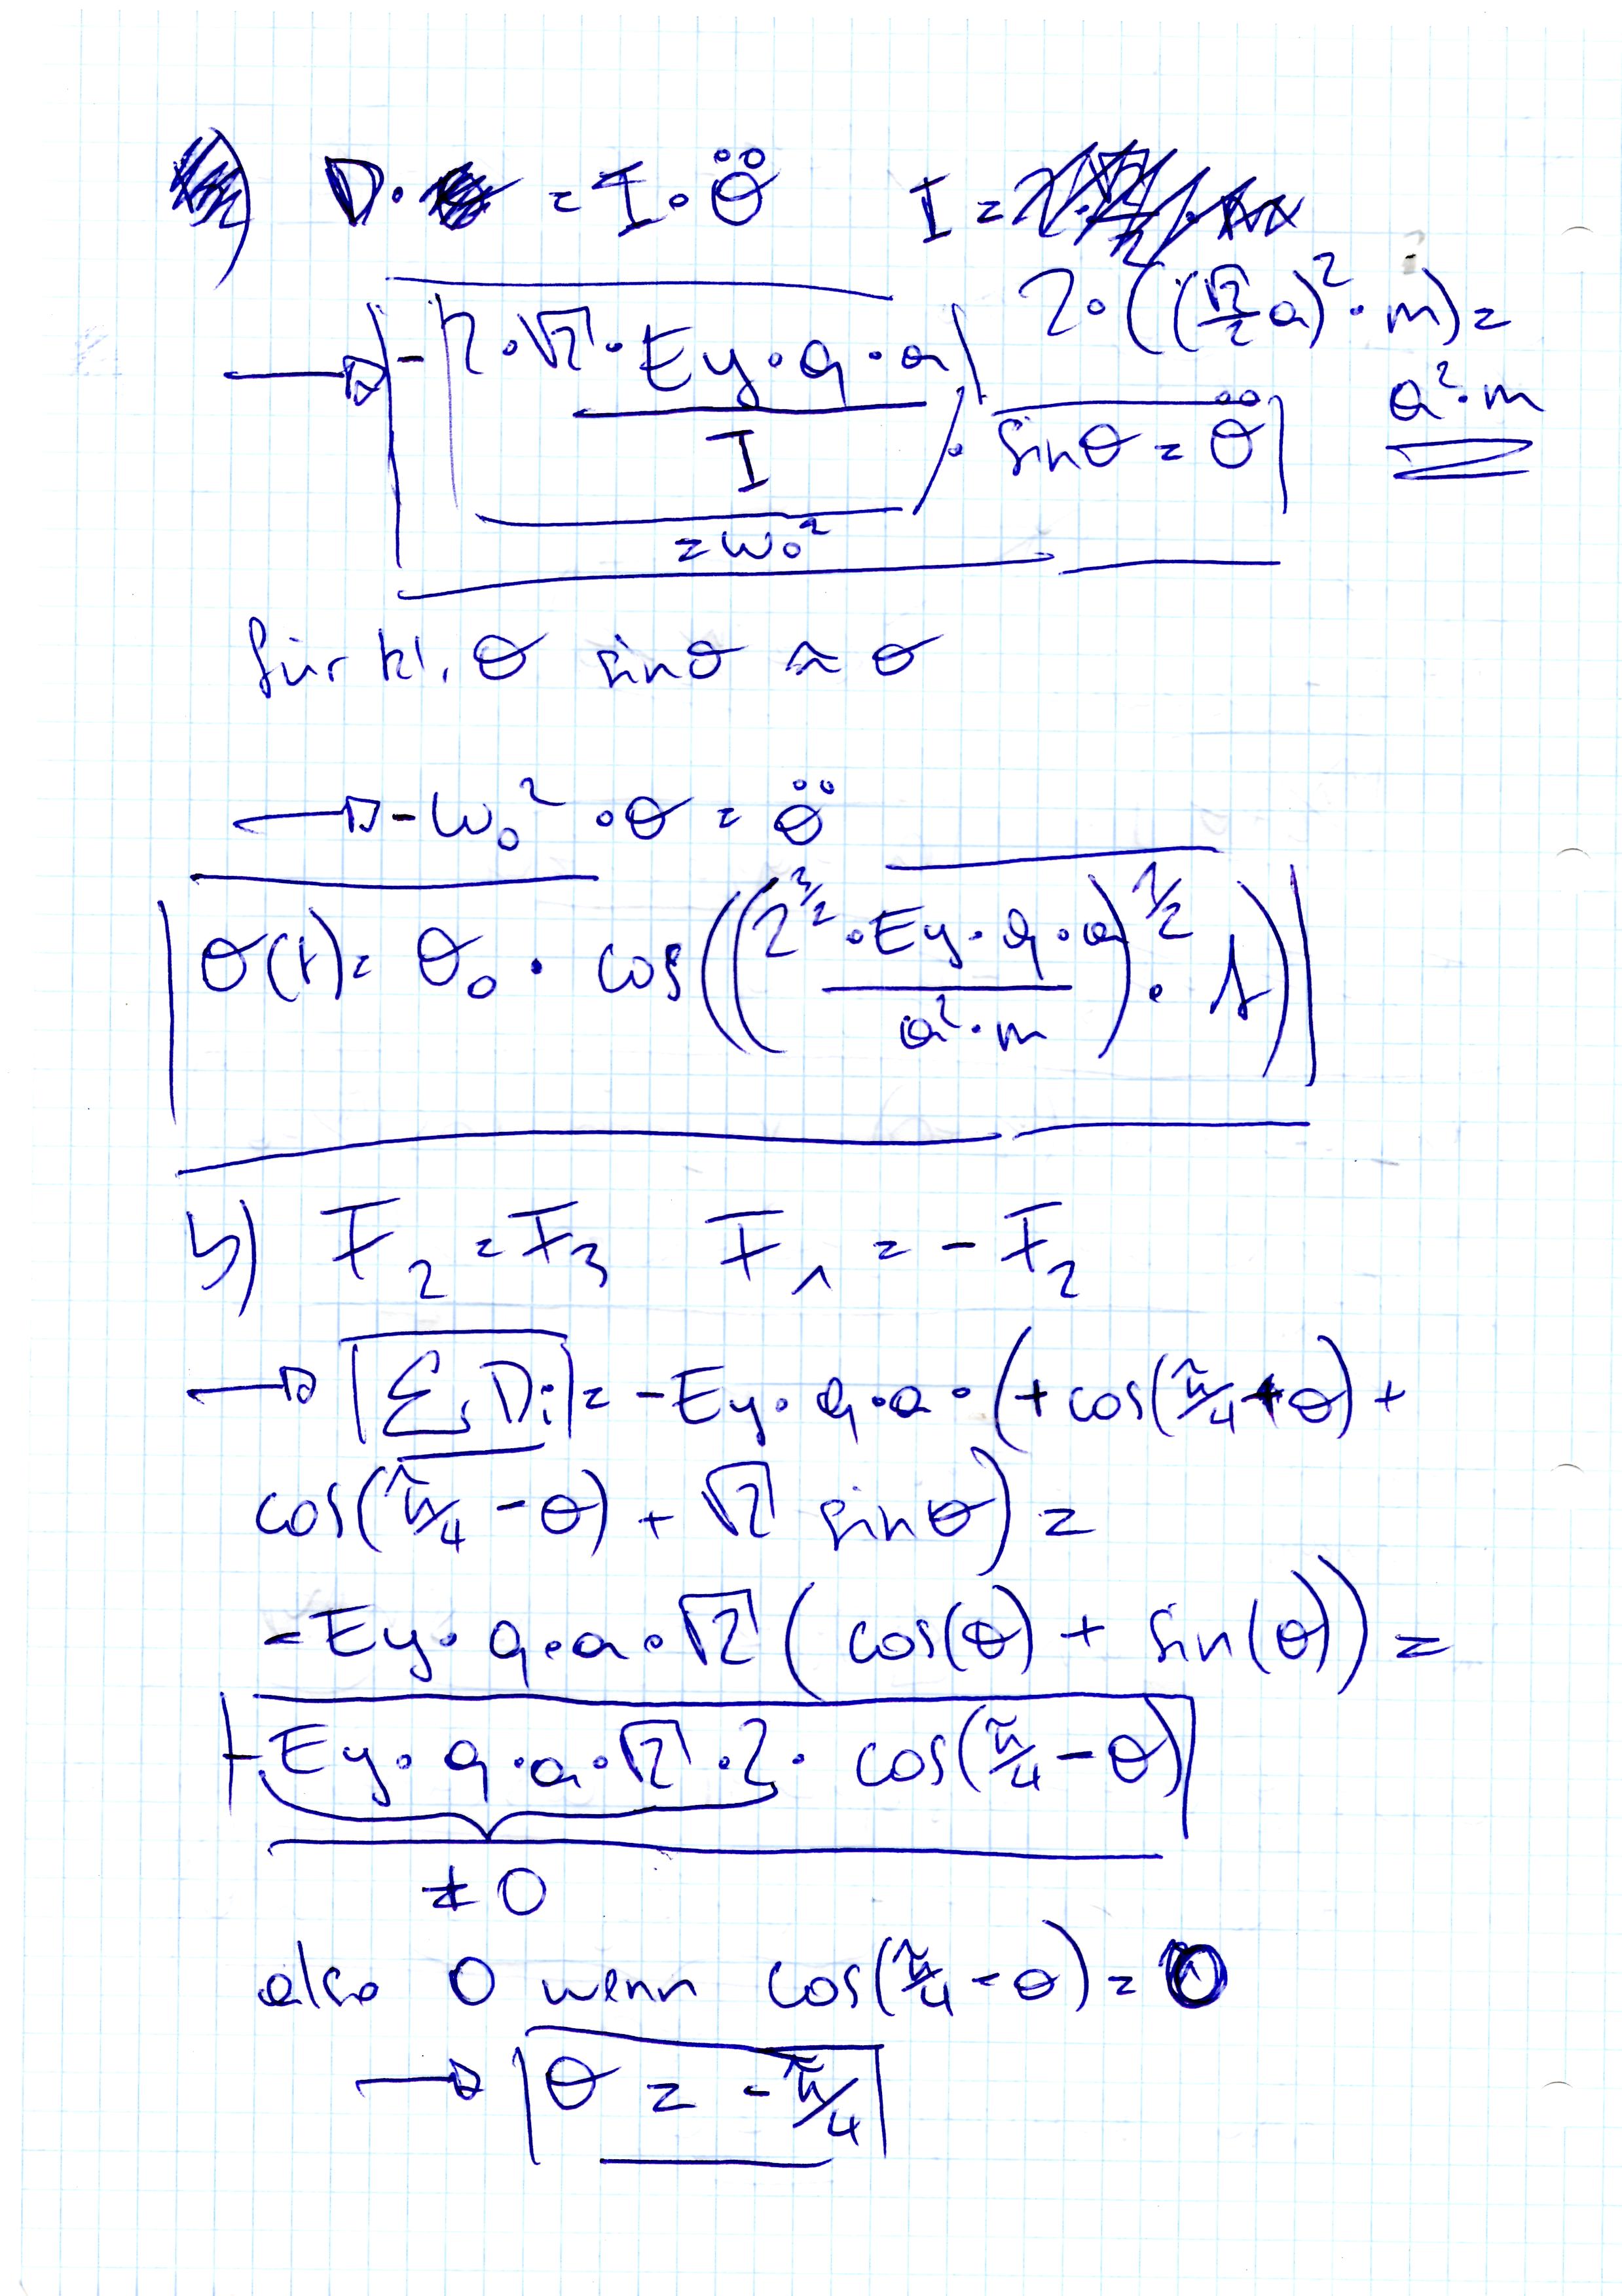 D · = I · θ̈    I =
2 · ((√2/2 a)² · m) =
a² · m
→ - (2 · √2 · Ey · q · a / I) · sinθ = θ̈
= ω₀²
für kl. θ sinθ ≈ θ
→ - ω₀² · θ = θ̈
θ(t) = θ₀ · cos((2^(3/2) · Ey · q · a / a² · m)^(1/2) · t)
b) F₂ = F₃    F₁ = - F₂
→ Σ Dᵢ = - Ey · q · a · (+ cos(π/4 + θ) +
cos(π/4 - θ) + √2 sinθ) =
- Ey · q · a · √2 (cos(θ) + sin(θ)) =
- Ey · q · a · √2 · 2 · cos(π/4 - θ)
≠ 0
also 0 wenn cos(π/4 - θ) = 0
→ θ = - π/4